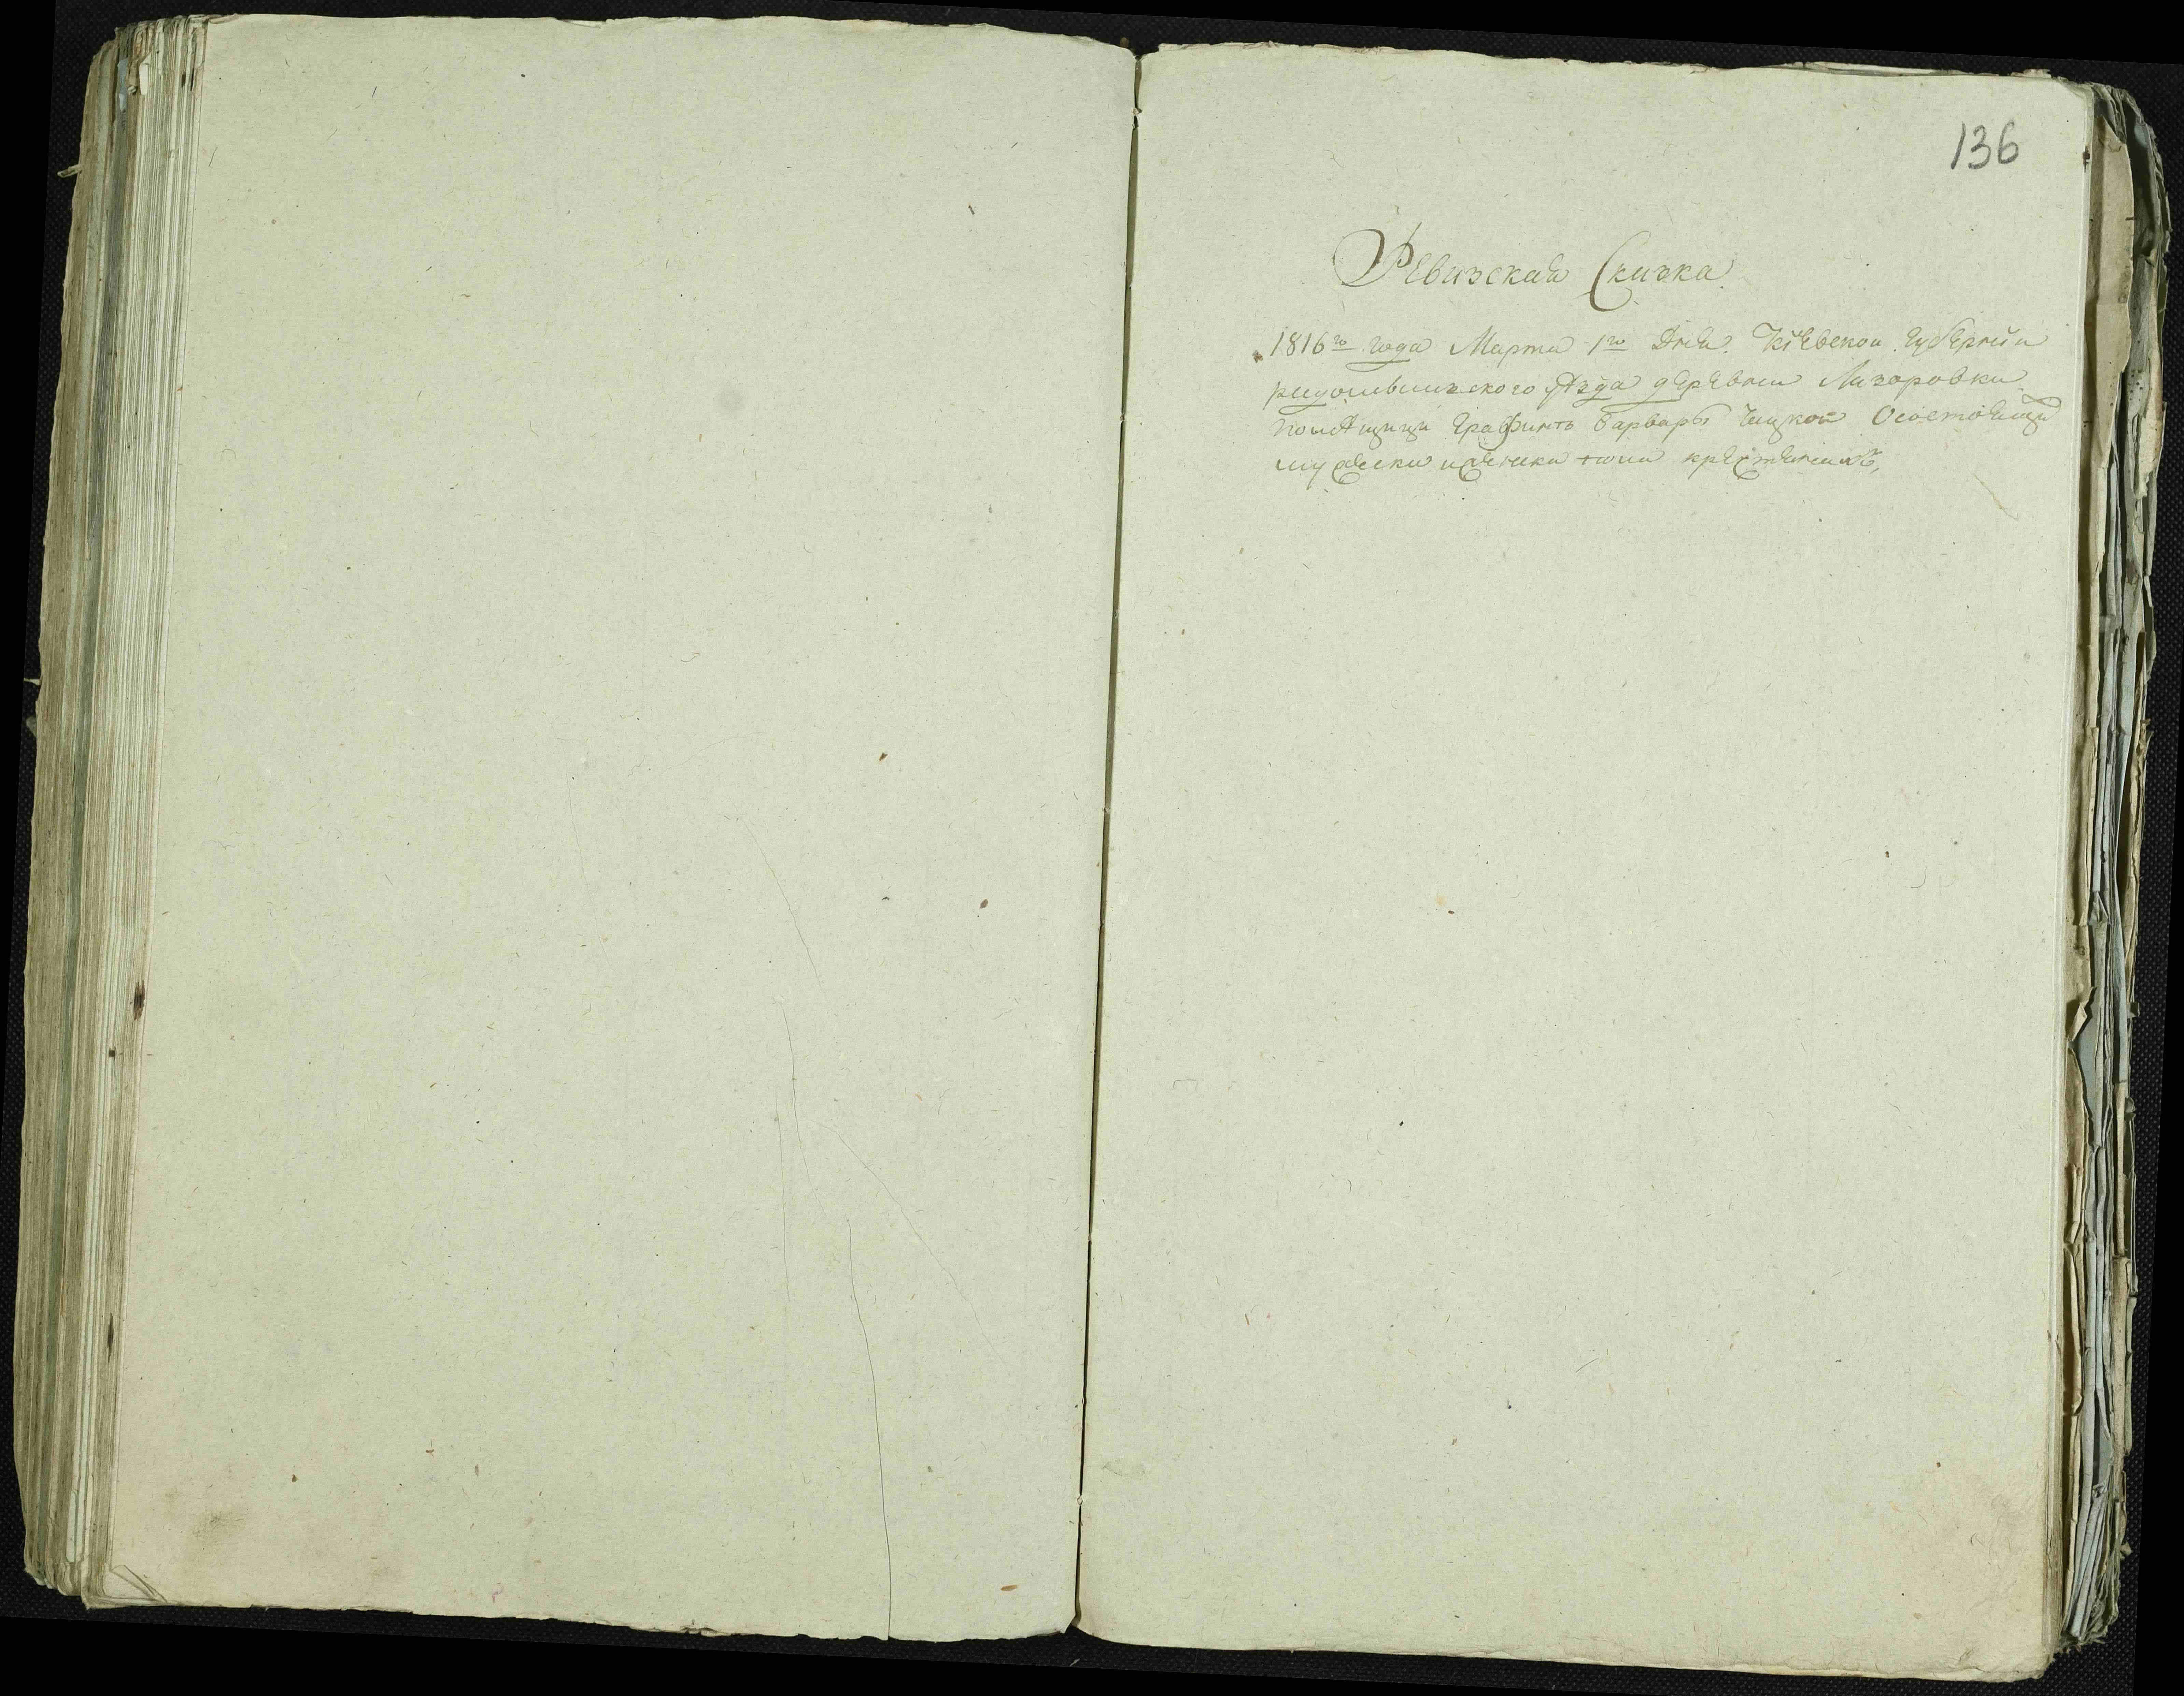 136
Ревизская Сказка.
1816го года Марта 1го Дня. Кіевской губерніи
радомысльского уѣзда деревни Лазаровки
помѣщици Графинѣ Варвары Чацкой О состоящи
мужеска и женска пола крестянахъ,